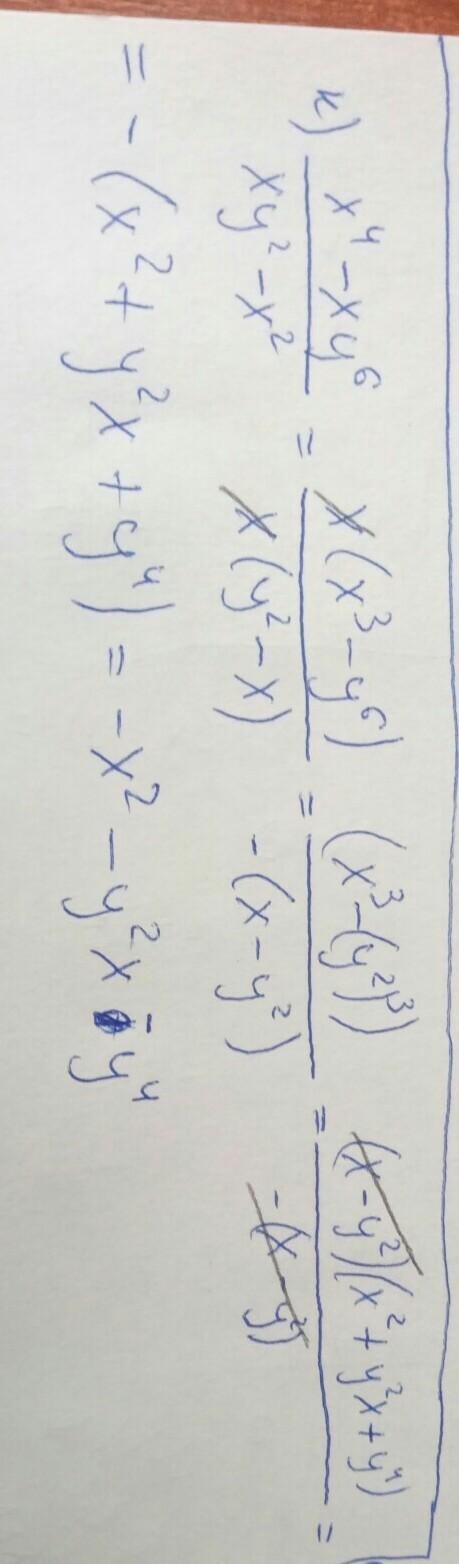 к) (x⁴ - xy⁶)/(xy² - x²) = (x(x³ - y⁶))/(x(y² - x)) = ((x³ - (y²)³))/(-(x - y²)) = ((x - y²)(x² + y²x + y⁴))/(-(x - y²)) =
= - (x² + y²x + y⁴) = - x² - y²x - y⁴